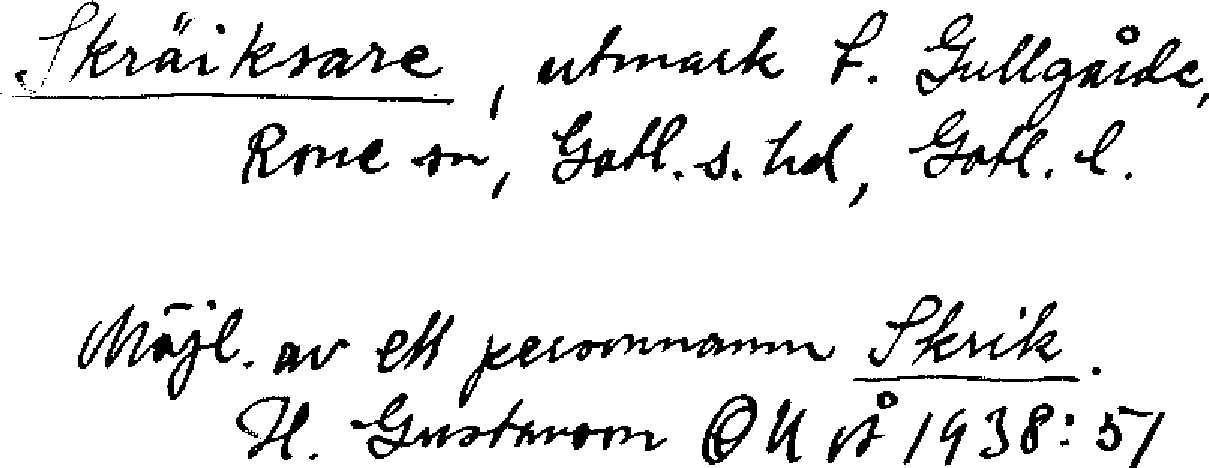 Skräiksare, utmark t. Gullgårde,
Rone sn, Gotl. s. hd, Gotl. l.
Möjl. av ett personnamn Skrik.
H. Gustavson OU vå 1938:51